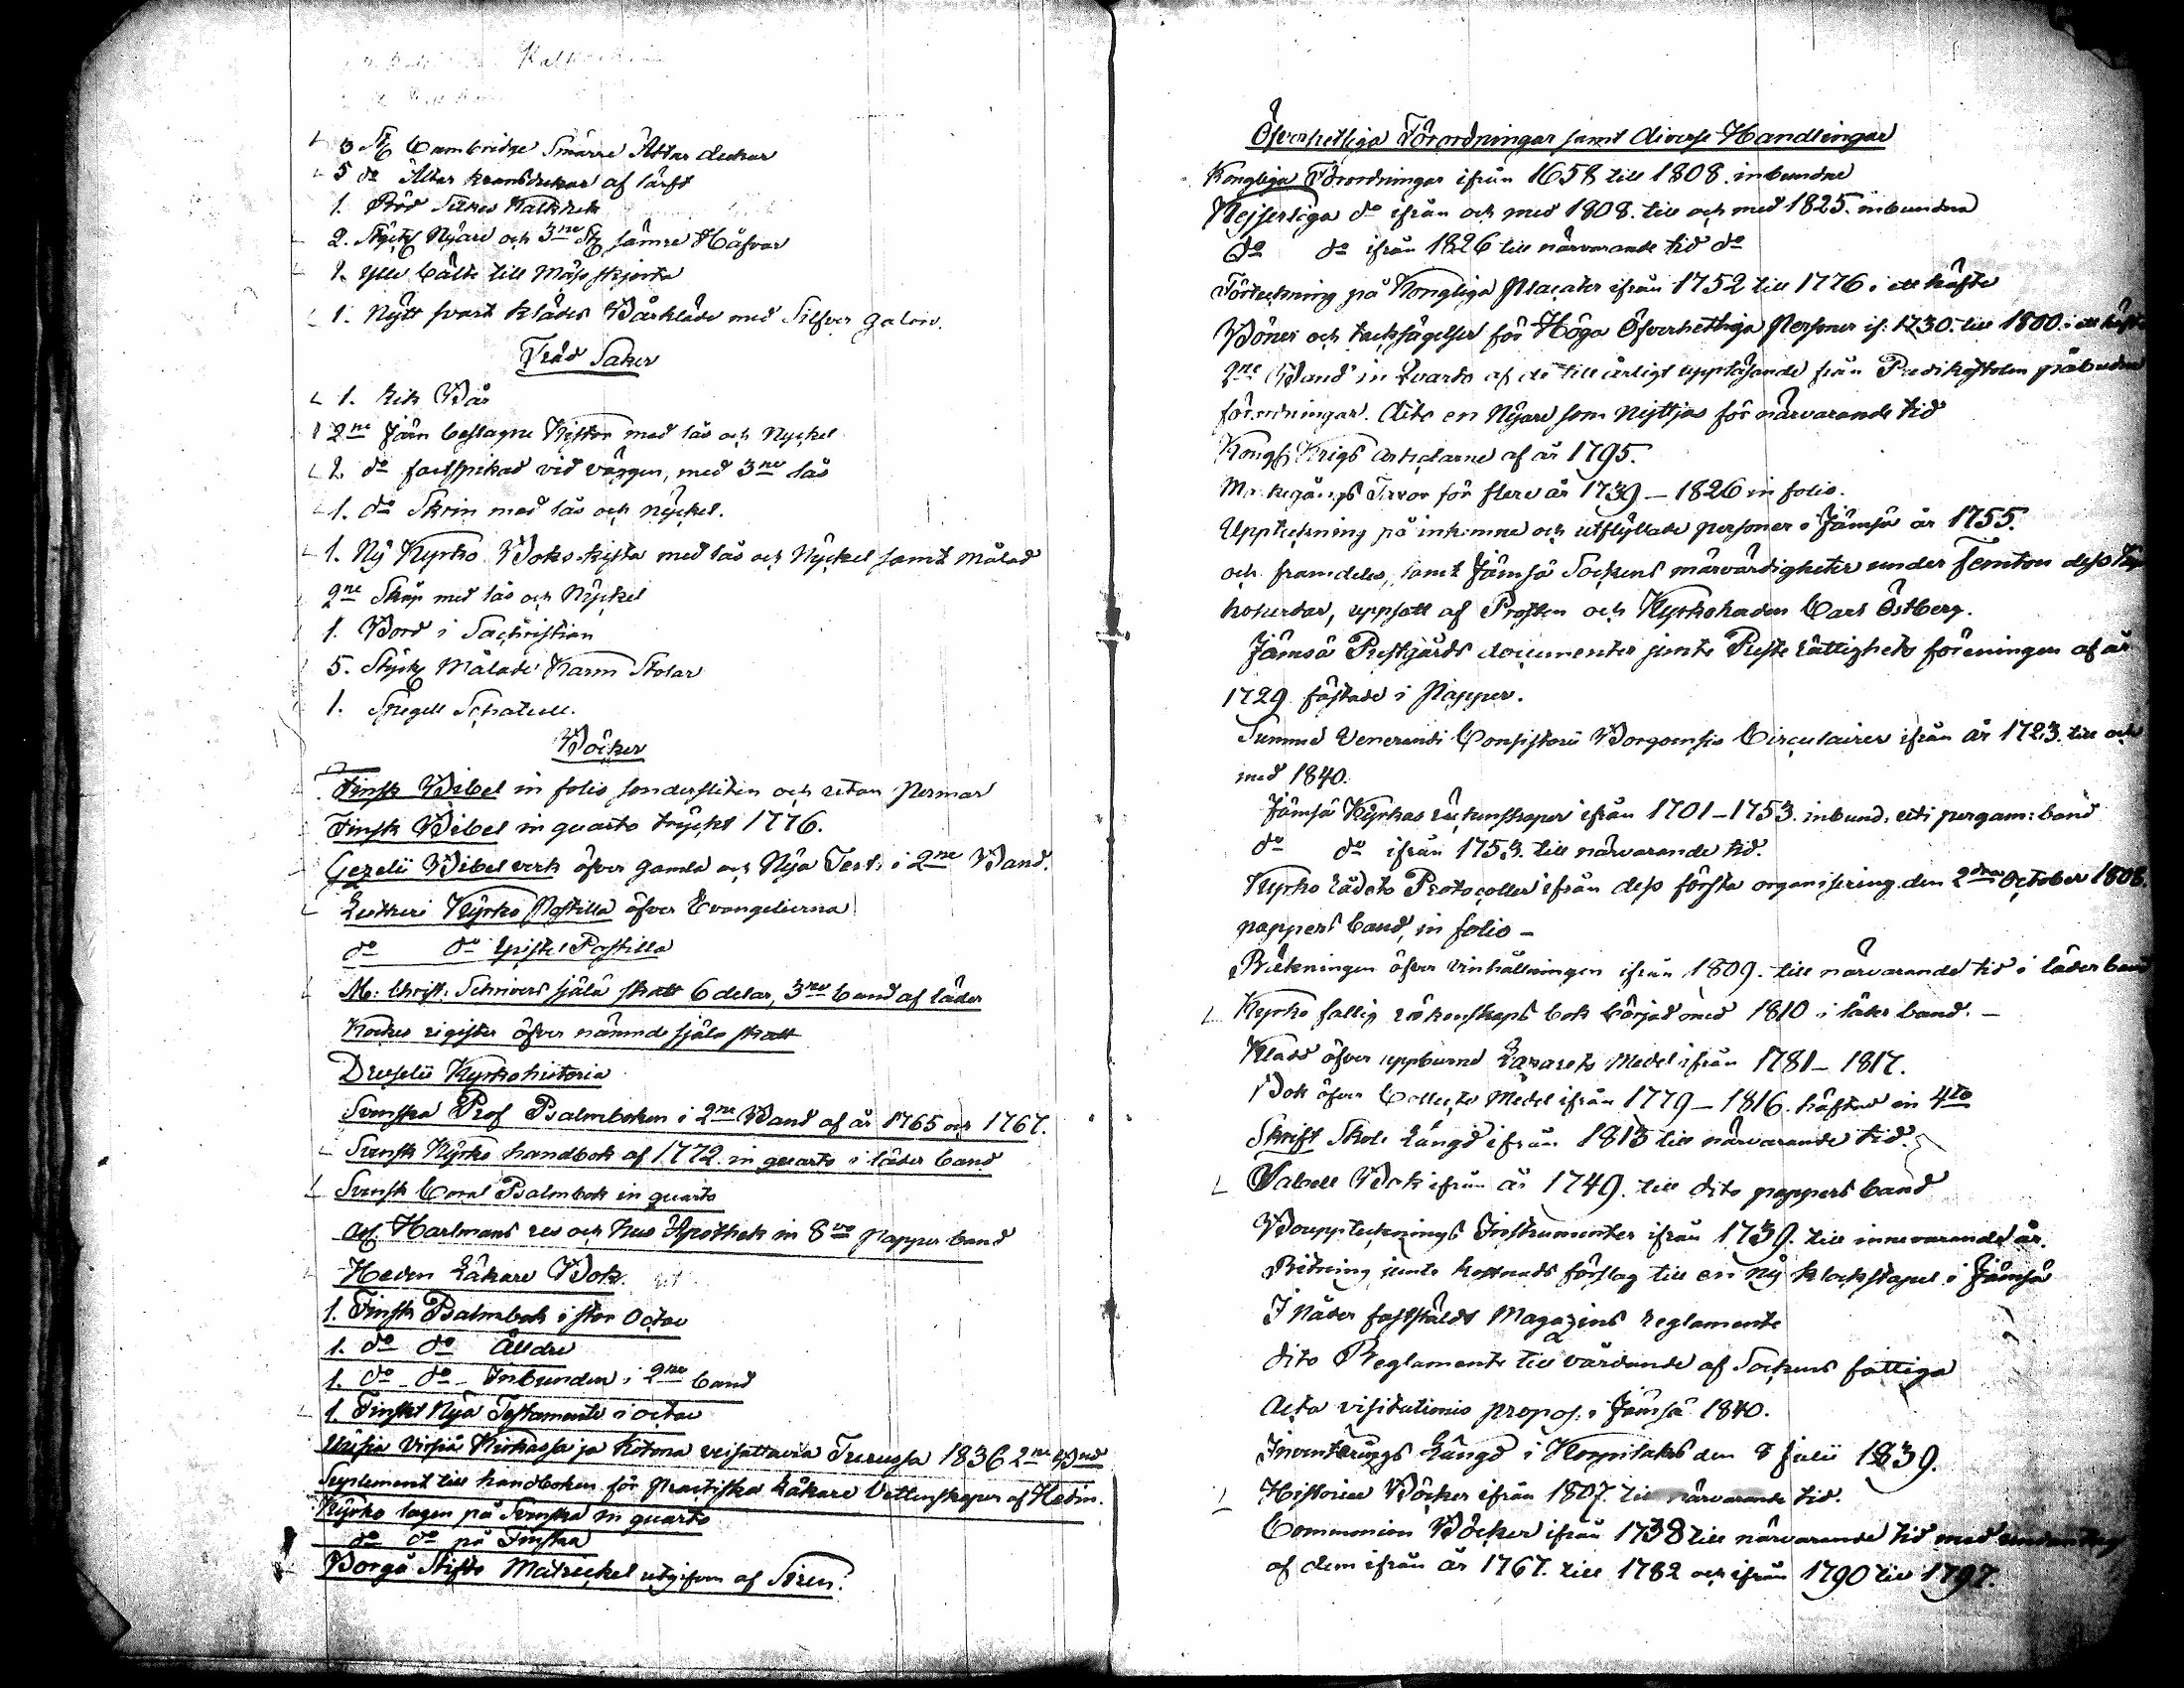 3 St: Cambridge Smärre Altar dukar
5 do Altar kransdukar af lärft
1. Röd Silkes Kalkduk
2. Stycks Nyare och 3ne St: sämre Håfvar
1. ylle bälte till Mässskjorta
1. Nytt svart klädes Bårkläde med Silfver galon.
Träd Saker
1. Lik Bår
2ne Järn beslagne Kistor med lås och Nyckel
1. do fastspikad vid väggen, med 3ne lås
1. do Skrin med lås och nyckel.
1. Ny Kyrko Boks-kista med lås och Nyckel samt målad
2ne Skåp med lås och Nyckel
1. Bord i Sachristian
5. Stycks Målade Karm Stolar
1. Spegell Schatull.
Böcker
Finsk Bibel in folio sönderslitin och utan Permar
Finsk Bibel in quarto tryckt 1776.
Gezelii Bibelverk öfver gamla och Nya Test: i 2ne Band.
Lutheri Kyrko Postilla öfver Evangelierna
do do Epistel Postilla
M: Christ: Schrivers själa skatt 6 delar, 3ne band af läder
Kockes rigister öfver nämnde själa skatt
Druselii Kyrkohistoria
Svenska Prof Psalmboken i 2ne Band af år 1765 och 1767.
Svensk Kyrko handbok af 1772. in quarto i läder band
Svensk Coral Psalmbok in quarto
Ad: Hartmans res och Hus Apothek in 8vo Papper band
Hedin Läkare Bok.
1. Finsk Psalmbok i stor Octav
1. do do Älldre
1. do - do - Inbunden i 2ne band
1. Finskt Nya Testamente i octav
Uusia Virsiä Kirkossa ja Kotona veisattavia Turussa 1836 2ne Band
Suplement till handboken för Practiska Läkare Vettenskaper af Hedin.
Kyrko lagen på Svenska in quarto
do do på Finska
Borgå Stifts Matrickel utgifven af Sirén.
Öfverhetliga Förordningar samt diverse Handlingar
Kongliga Förordningar ifrån 1658 till 1808. inbundne
Kejserliga do ifrån och med 1808. till och med 1825. inbundna
do do ifrån 1826 till närvarande tid do
Förteckning på Kongliga Placater ifrån 1752 till 1776 i ett häfte
Böner och tacksägelser för Höga Öfverhetliga Personer if: 1730. till 1800. i ett häfte
2ne Band in Quarto af de till årligt uppläsande från Predikostolen påbudna
förordningar. dito en Nyare som nyttjas för närvarande tid
Kongl: Krigs Articlarne af år 1795.
Markegångs Taxor för flere år 1739 - 1826 in folio.
Uppteckning på inkomne och utflyttade personer i Jämsä år 1755.
och framdeles, samt Jämsä Sockens märvärdigheter under Femton dess
kohurdar, uppsatt af Prosten och Kyrkoherden Carl Östberg.
Jämsä Prestgårds documenter jemte Prste rättighets föreningen af år
1729 fästade i Papper.
Summe Venerandi Consistorii Borgoensis Circulairer ifrån år 1723. till och
med 1840.
Jämsä Kyrkas räkenskaper ifrån 1701-1753. inbund: uti pergam: band
do do ifrån 1753. till närvarande tid.
Kyrko rådets Protocoller ifrån dess första organisering den 2dra October 1808.
pappers band, in folio -
Räkningen öfver vinhållningen ifrån 1809. till närvarande tid i läder band
Kyrko fattig räkenskaps bok börjad med 1810 i läder band. -
Kladd öfver uppburne Lazarets Medel ifrån 1781 - 1817.
Bok öfver Collecte Medel ifrån 1779 - 1816. häftad in 4to
Skrift Skole Längd ifrån 1813 till närvarande tid.
Tabell Bok ifrån år 1749. till dito pappers band
Bouppteknings Instrumenter ifrån 1739. till innevarande år.
Ritning jemte kostnads förslag till en ny klockstapel i Jämsä
I Nåder faststäldt Magazins reglemente
dito Reglamente till vårdande af Sockens fattiga
Acta visitationis propos: i Jämsä 1840.
Inventerings Längd i Korpilaks den 8 Julii 1839.
Historiae Böcker ifrån 1807. till närvarande tid.
Communion Böcker ifrån 1738 till närvarande tid med undantag
af dem ifrån år 1767. till 1782 och ifrån 1790 till 1797.